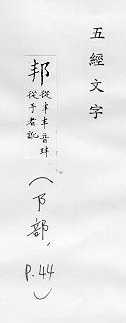 五經文字
邦
從丰丰音蚌
從手者訛
(阝部, P.44)